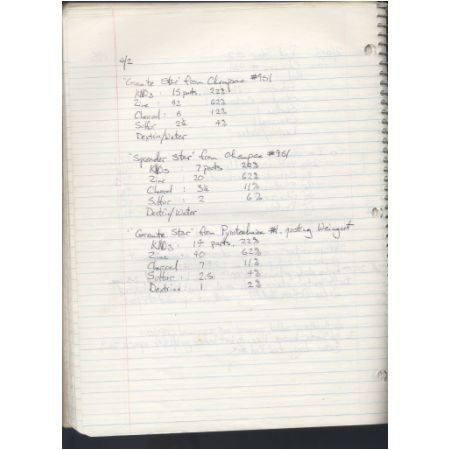 4/2
"Granite Star" from Champion #951
KNO3 : 15 parts, 22%
Zinc : 42 62%
Charcoal : 8 12%
Sulfur 4%
Dextrin/Water
"Spreader Star" from Champion #961
KNO3 7 parts 20%
Zinc : 20 62%
Charcoal : 11%
Sulfur : 2 6%
Dextrin/Water
"Granite Star" from #1, quoting Weingart
KNO3 : 14 parts, 22%
Zinc : 40 62%
Charcoal 7 11%
Sulfur : 2.5 4%
Dextrine : 1 2%